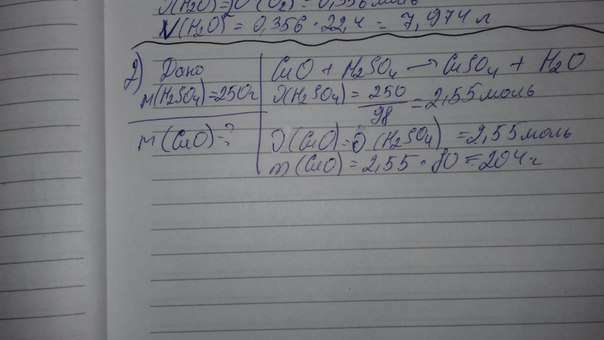 ν(H₂O)=ν(O₂)=0,356моль
V(H₂O)=0,356·22,4=7,974л
2) Дано
m(H₂SO₄)=250г
m(CuO)-?
CuO + H₂SO₄ → CuSO₄ + H₂O
ν(H₂SO₄)=250/98=2,55моль
ν(CuO)=ν(H₂SO₄)=2,55моль
m(CuO)=2,55·80=204г